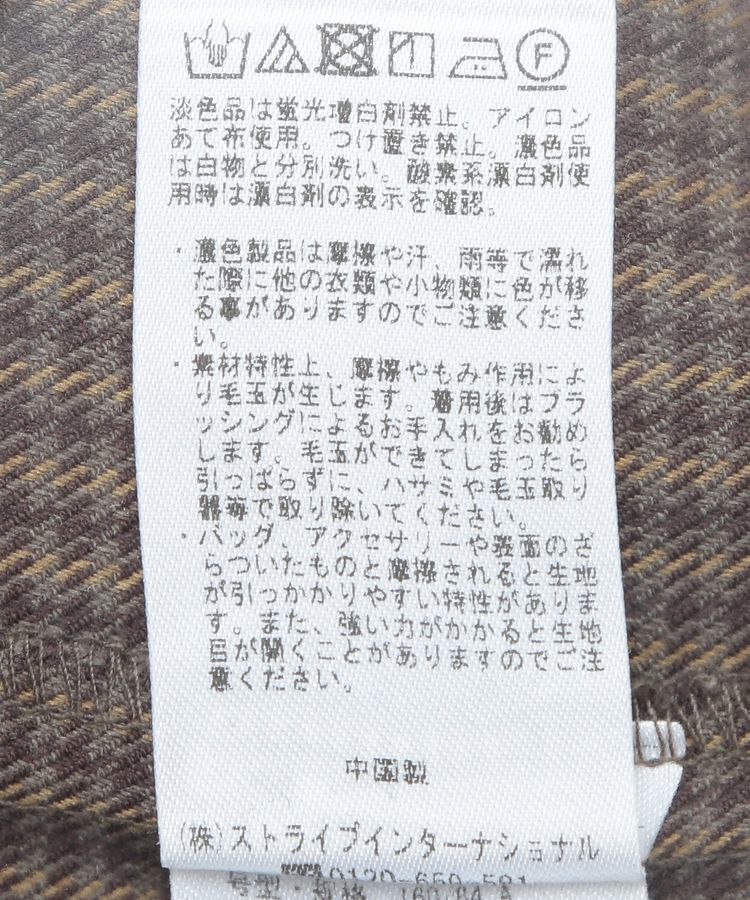 淡色品は蛍光増白剤禁止。アイロン
あて布使用。つけ置き禁止。濃色品
は白物と分別洗い。酸素系漂白剤使
用時は漂白剤の表示を確認。
・濃色製品は摩擦や汗、雨等で濡れ
た際に他の衣類や小物類に色が移
る事がありますのでご注意くださ
い。
・素材特性上、摩擦やもみ作用によ
り毛玉が生じます。着用後はブラ
ッシングによるお手入れをお勧め
します。毛玉ができてしまったら
引っぱらずに、ハサミや毛玉取り
器等で取り除いてください。
・バッグ、アクセサリーや表面のざ
らついたものと摩擦されると生地
が引っかかりやすい特性がありま
す。また、強い力がかかると生地
目が開くことがありますのでご注
意ください。
中国製
(株)ストライプインターナショナル
0120-650-591
号型・規格 160/84 A